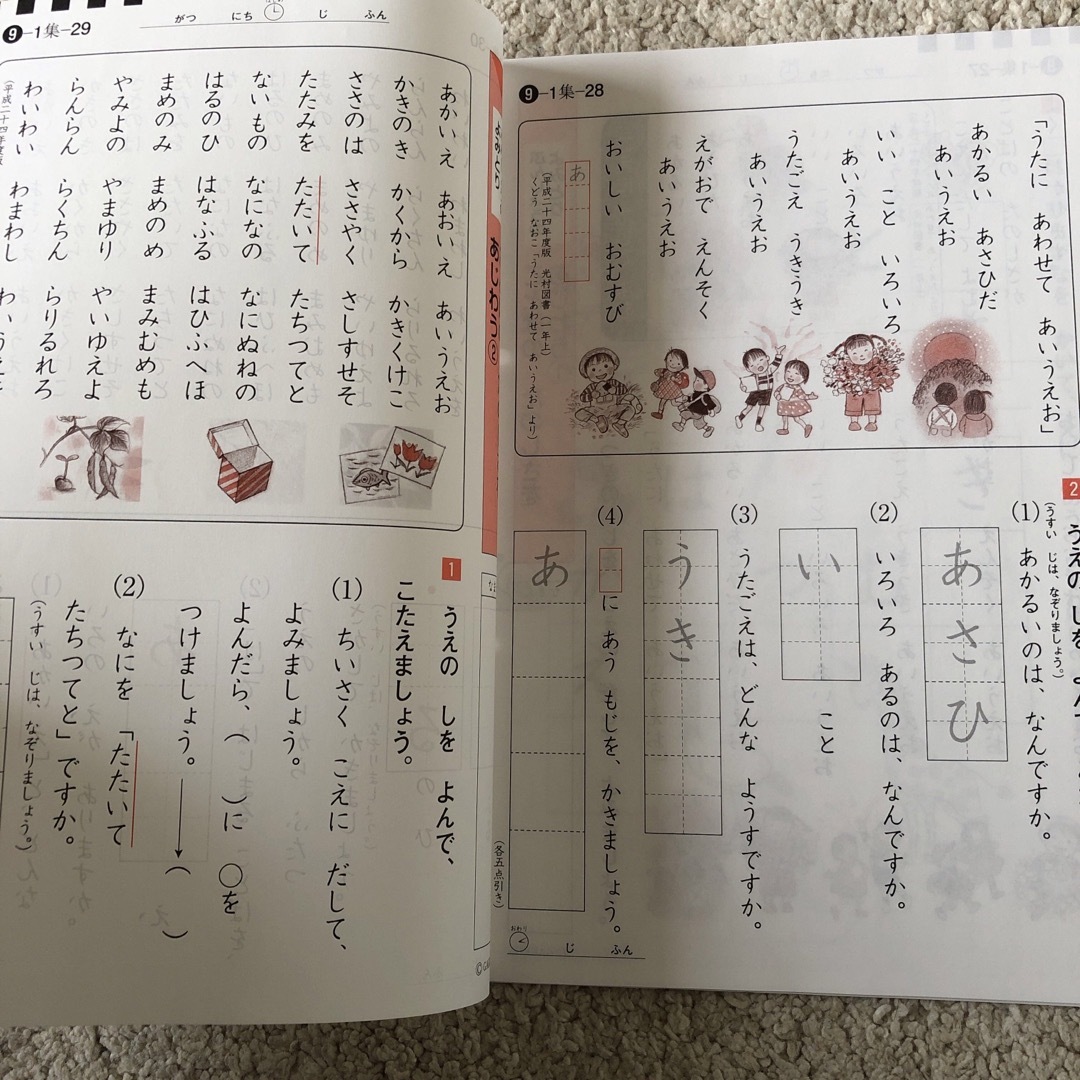 ❾-1集-28
「うたに あわせて あいうえお」
あかるい あさひだ
あいうえお
いい こと いろいろ
あいうえお
うたごえ うきうき
あいうえお
えがおで えんそく
あいうえお
おいしい おむすび
あ
くどう なおこ「うたに あわせて あいうえお」より
(平成二十四年度版 光村図書(一年上)
2
うえの しを よんで
(うすい じは、なぞりましょう。)
(1) あかるいのは、なんですか。
あさひ
(2) いろいろ あるのは、なんですか。
い
こと
(3) うたごえは、どんな ようすですか。
うき
(4) に あう もじを、かきましょう。
あ
おわり
じ ふん
❾-1集-29
がつ にち じ ふん
あじわう②
あかいえ あおいえ あいうえお
かきのき かくから かきくけこ
ささのは ささやく さしすせそ
たたみを たたいて たちつてと
ないもの なになの なにぬねの
はるのひ はなふる はひふへほ
まめのみ まめのめ まみむめも
やみよの やまゆり やいゆえよ
らんらん らくちん らりるれろ
わいわい わまわし わいうえを
(平成二十四年度版
1
うえの しを よんで、
こたえましょう。
(各五点引き)
(1) ちいさく こえに だして、
よみましょう。
よんだら、( )に ○を
つけましょう。→( )
(2) なにを 「たたいて
たちつてと」ですか。
(うすい じは、なぞりましょう。)